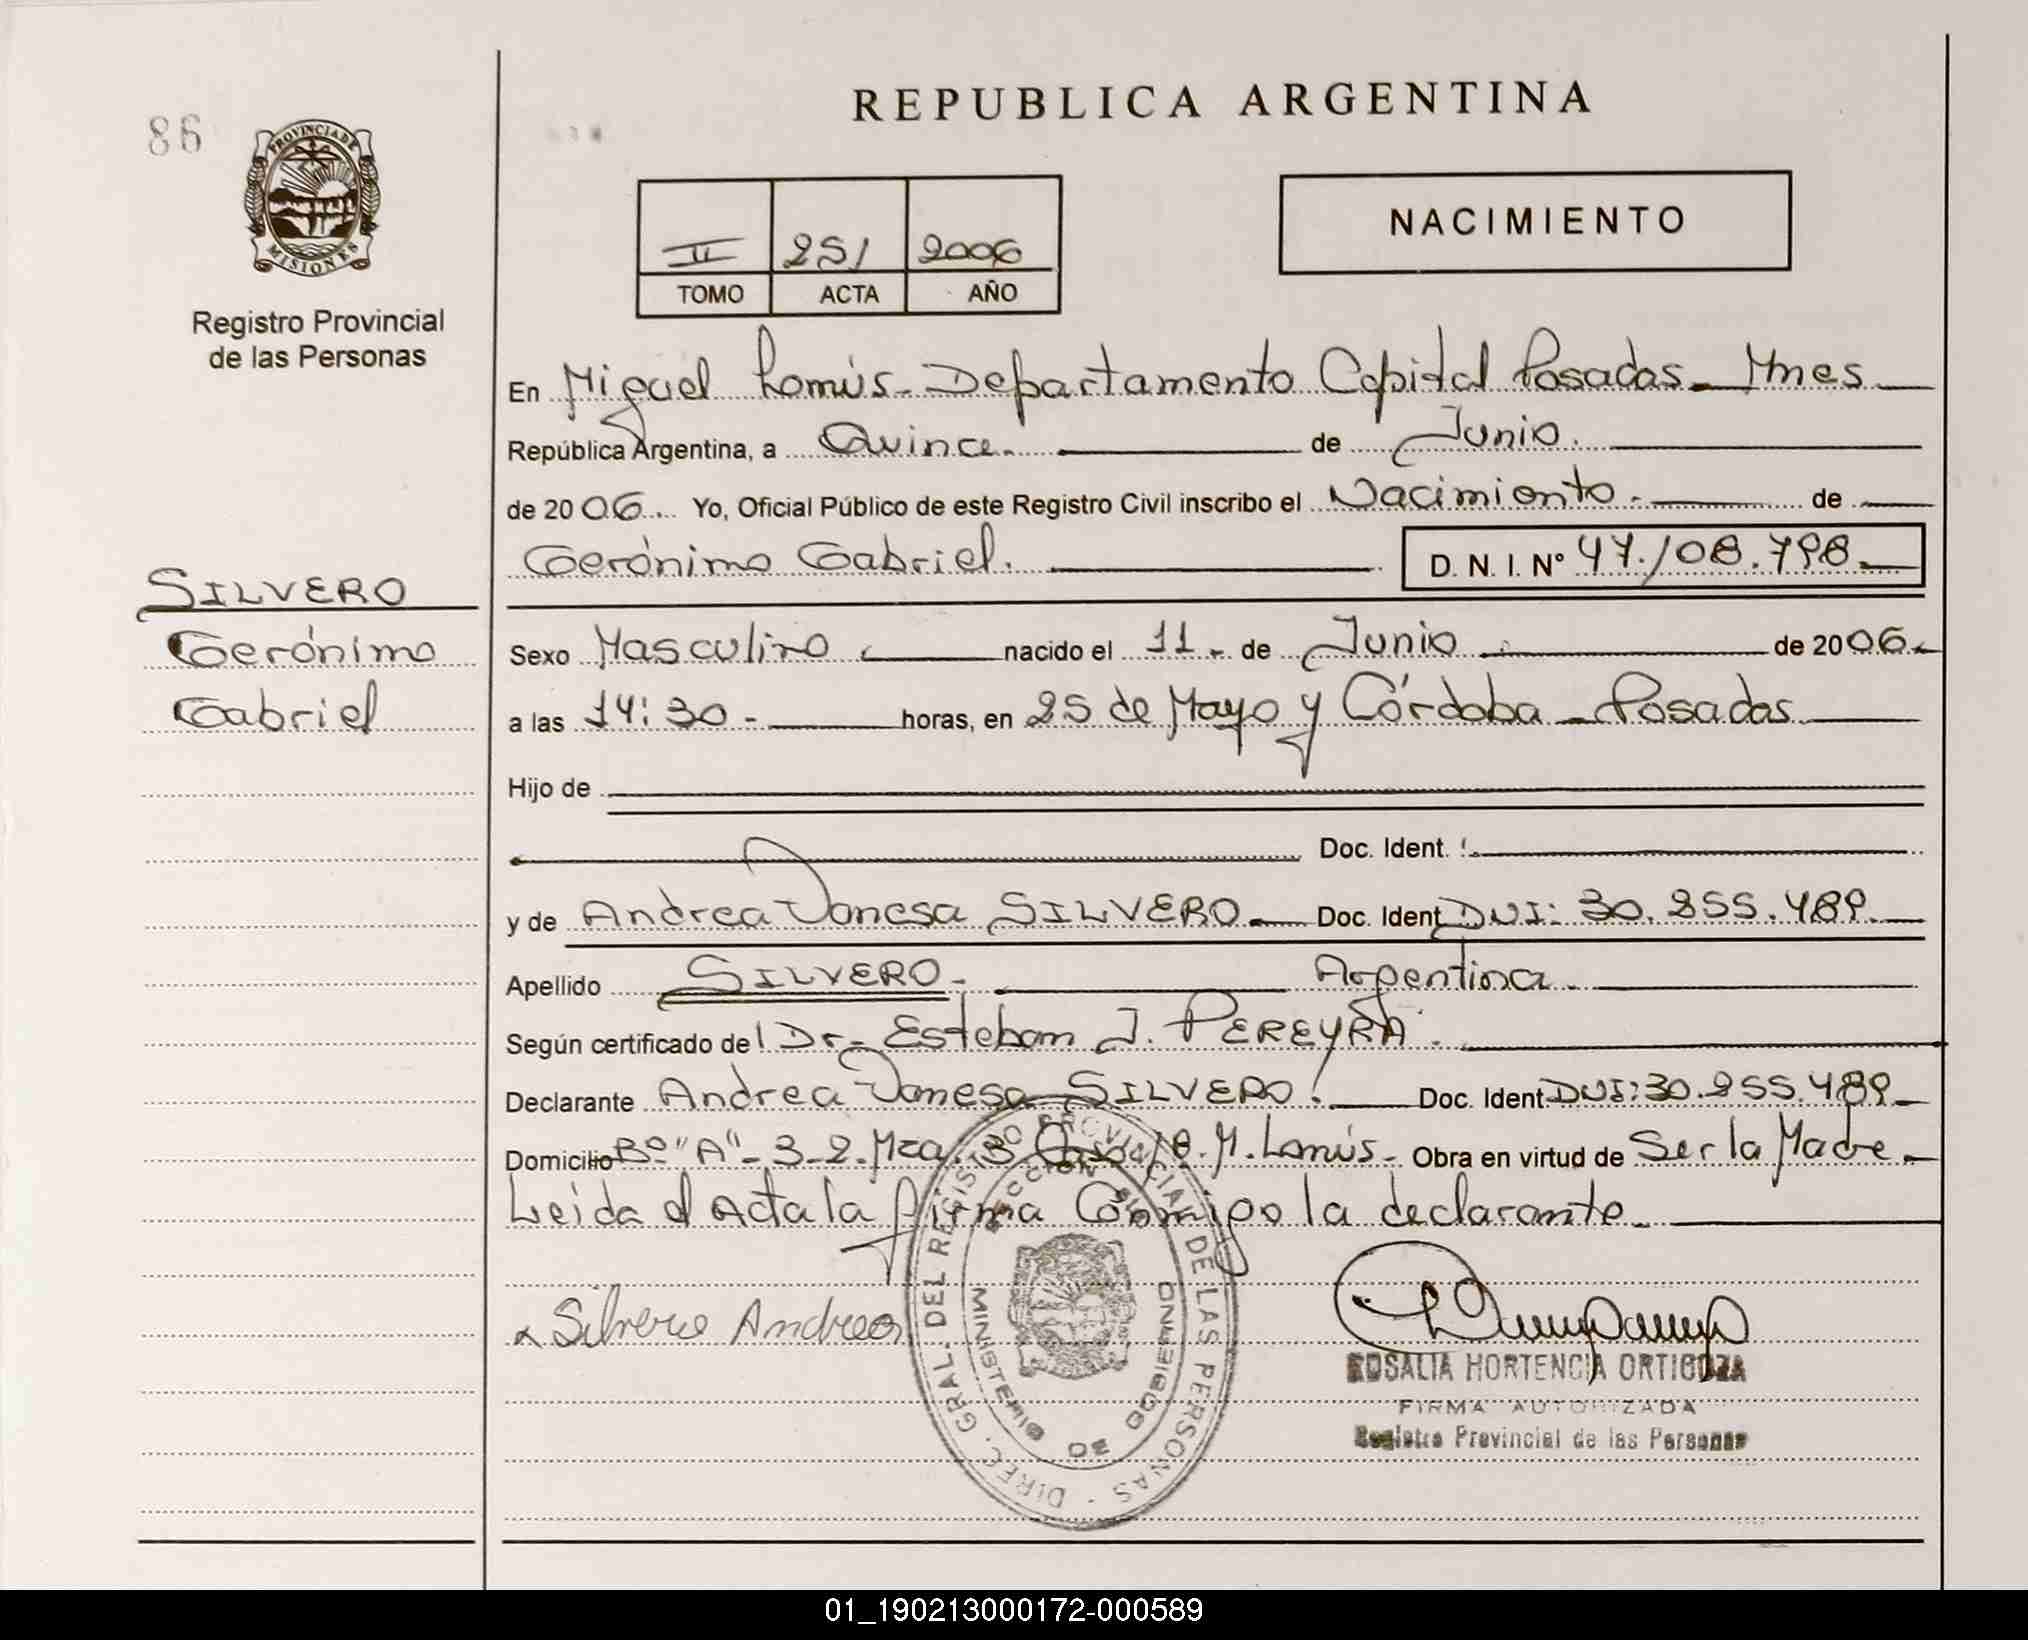 REPUBLICA ARGENTINA
86
PROVINCIA DE
MISIONES
Registro Provincial
de las Personas
II 251 2006
TOMO ACTA AÑO
NACIMIENTO
En Miguel Lanús - Departamento Capital Posadas - Mnes
República Argentina, a Quince.- de Junio.
de 2006. Yo, Oficial Público de este Registro Civil inscribo el Nacimiento.- de
Gerónimo Gabriel. D. N. I. Nº 47.108.798.
SILVERO
Gerónimo
Gabriel
Sexo Masculino nacido el 11 - de Junio de 2006.-
a las 14:30 - horas, en 25 de Mayo y Córdoba - Posadas
Hijo de
Doc. Ident.
y de Andrea Vanesa SILVERO.- Doc. Ident DNI: 30.255.489.
Apellido SILVERO.- Argentina.
Según certificado del Dr. Esteban J. PEREYRA.
Declarante Andrea Vanesa SILVERO. Doc. Ident DNI: 30.255.489.-
Domicilio Bº "A" - 3-2. Mza. 3 M. Lanús. Obra en virtud de Ser la Madre.-
Leida el Acta la firma Conmigo la declarante.
Silvero Andrea
DIREC. GRAL. DEL REGISTRO PROVINCIAL DE LAS PERSONAS
MINISTERIO DE GOBIERNO
ROSALIA HORTENCIA ORTIGOZA
FIRMA AUTORIZADA
Registro Provincial de las Personas
01_190213000172-000589